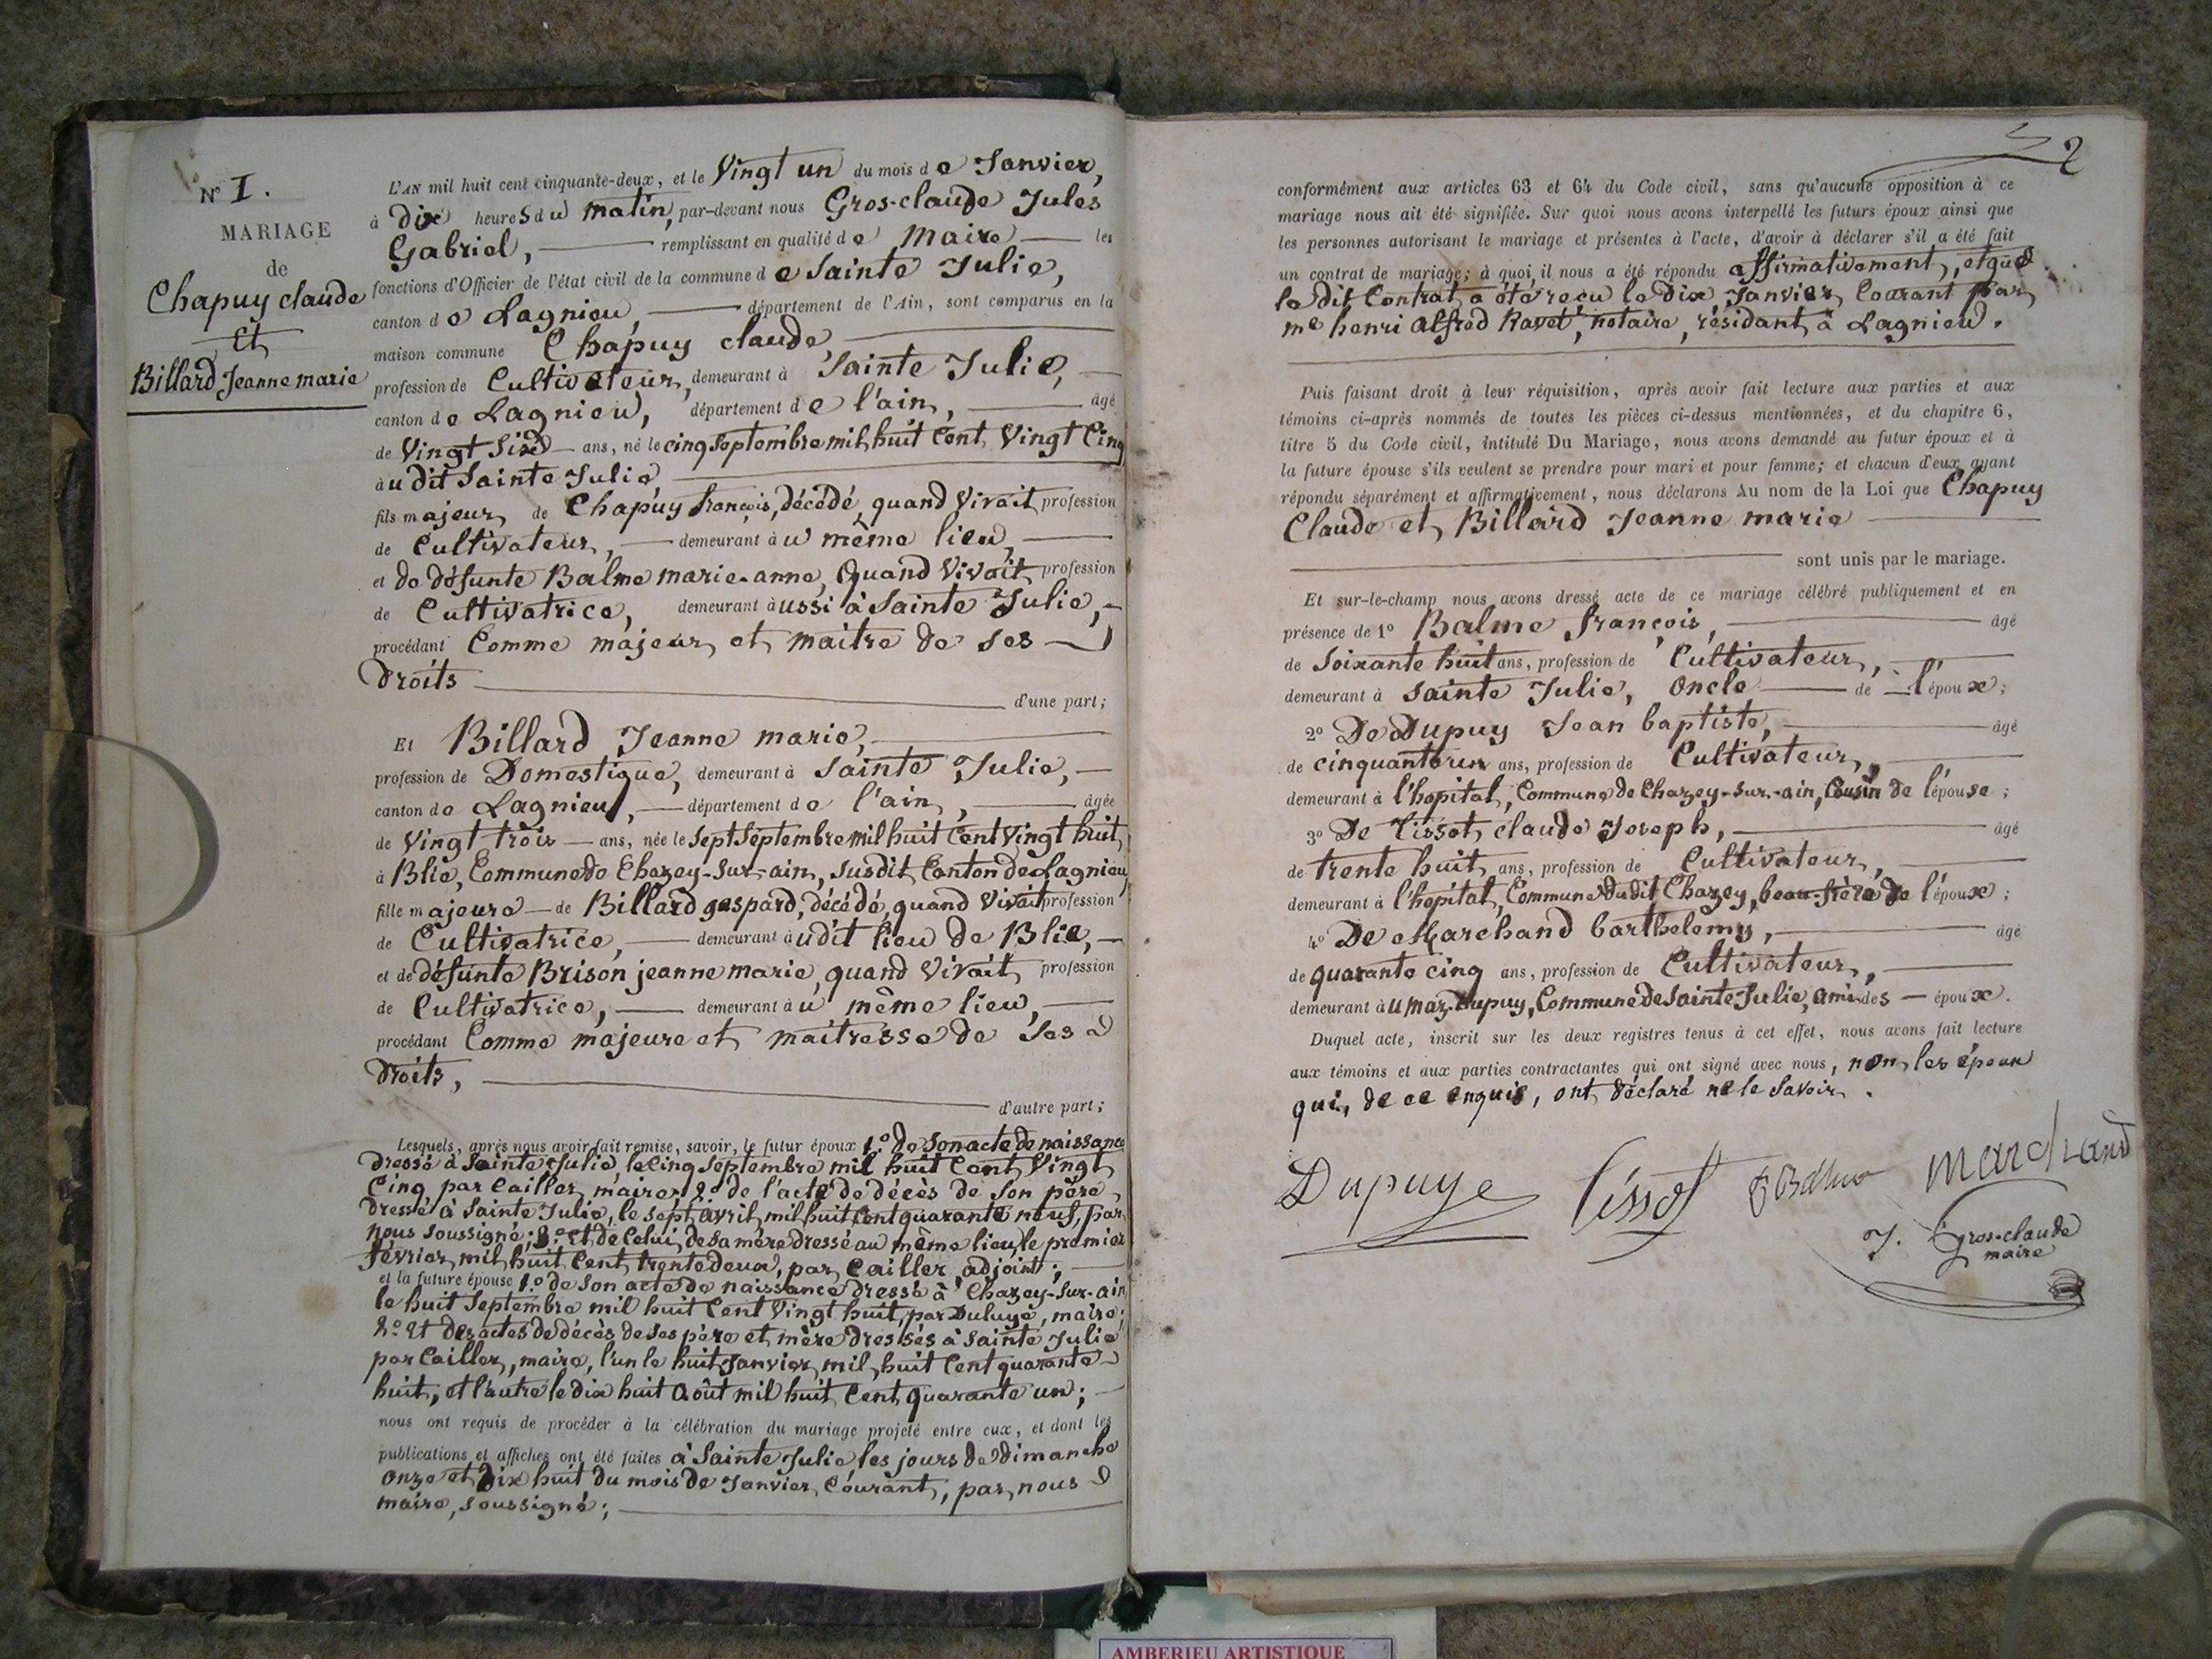 N° I.
MARIAGE
de
Chapuy claude
Et
Billard Jeanne marie
L'AN mil huit cent cinquante-deux, et le Vingt un du mois de Janvier,
à dix heures du matin, par-devant nous Gros-claude Jules
Gabriel, remplissant en qualité de maire les
fonctions d'Officier de l'état civil de la commune de Sainte Julie,
canton de Lagnieu, département de l'Ain, sont comparus en la
maison commune Chapuy claude,
profession de Cultivateur, demeurant à Sainte Julie,
canton de Lagnieu, département de l'ain, âgé
de Vingt Six ans, né le cinq Septembre mil huit Cent Vingt Cinq
au dit Sainte Julie
fils majeur de Chapuy françois, décédé, quand Vivait profession
de Cultivateur, demeurant au même lieu,
et de défunte Balme marie-anne, Quand Vivait profession
de Cultivatrice, demeurant aussi à Sainte Julie,
procédant Comme majeur et maître de ses
droits
d'une part;
Et Billard Jeanne marie,
profession de Domestique, demeurant à Sainte Julie,
canton de Lagnieu, département de l'ain, âgée
de Vingt trois ans, née le Sept Septembre mil huit Cent Vingt huit
à Blie, Commune de Chazey-Sur-ain, Susdit Canton de Lagnieu
fille majeure de Billard gaspard, décédé, quand Vivait profession
de Cultivatrice, demeurant audit lieu de Blie,
et de défunte Brison jeanne marie, quand Vivait profession
de Cultivatrice, demeurant au même lieu,
procédant Comme majeure et maîtresse de Ses
Droits,
d'autre part;
Lesquels, après nous avoir fait remise, savoir, le futur époux 1.° de Son acte de naissance
dressé à Sainte Julie, le Cinq Septembre mil huit Cent Vingt
Cinq, par Cailler, maire; 2.° de l'acte de décès de Son père
dressé à Sainte Julie, le Sept avril, mil huit Cent quarante neuf, par
nous soussigné; 3.° et de Celui de Sa mère dressé au même lieu, le premier
février, mil huit Cent trente deux, par Cailler, adjoint;
et la future épouse 1.° de Son acte de naissance dressé à Chazey-Sur-ain
le huit Septembre mil huit Cent Vingt huit, par Duluye, maire;
2.° Et des actes de décès de Ses père et mère dressés à Sainte Julie
par Cailler, maire, l'un le huit Janvier, mil huit Cent quarante
huit, et l'autre le dix huit Août mil huit Cent quarante un;
nous ont requis de procéder à la célébration du mariage projeté entre eux, et dont les
publications et affiches ont été faites à Sainte Julie les jours de dimanche
onze et dix huit du mois de Janvier, Courant, par nous
maire, soussigné;
2
conformément aux articles 63 et 64 du Code civil, sans qu'aucune opposition à ce
mariage nous ait été signifiée. Sur quoi nous avons interpellé les futurs époux ainsi que
les personnes autorisant le mariage et présentes à l'acte, d'avoir à déclarer s'il a été fait
un contrat de mariage; à quoi il nous a été répondu affirmativement, et que
le dit Contrat a été reçu le dix Janvier, Courant par
me henri alfred Ravet, notaire, résidant à Lagnieu.
Puis faisant droit à leur réquisition, après avoir fait lecture aux parties et aux
témoins ci-après nommés de toutes les pièces ci-dessus mentionnées, et du chapitre 6,
titre 5 du Code civil, intitulé Du Mariage, nous avons demandé au futur époux et à
la future épouse s'ils veulent se prendre pour mari et pour femme; et chacun d'eux ayant
répondu séparément et affirmativement, nous déclarons Au nom de la Loi que Chapuy
Claude et Billard Jeanne marie
sont unis par le mariage.
Et sur-le-champ nous avons dressé acte de ce mariage célébré publiquement et en
présence de 1° Balme françois, âgé
de Soixante huit ans, profession de Cultivateur,
demeurant à Sainte Julie, Oncle de l'époux;
2° De Dupuy Jean baptiste, âgé
de cinquante un ans, profession de Cultivateur,
demeurant à l'hopital, Commune de Chazey-Sur-ain, Cousin de l'épouse;
3° De Tissot claude Joseph, âgé
de trente huit ans, profession de Cultivateur,
demeurant à l'hopital, Commune dudit Chazey, beau-frère de l'époux;
4° De Marchand barthelemy, âgé
de quarante cinq ans, profession de Cultivateur,
demeurant au maz-Dupuy, Commune de Sainte Julie, ami des époux.
Duquel acte, inscrit sur les deux registres tenus à cet effet, nous avons fait lecture
aux témoins et aux parties contractantes qui ont signé avec nous, non les époux
qui, de ce enquis, ont déclaré ne le Savoir.
Dupuye Tissot Marchand
J. Gros-claude
maire
AMBERIEU ARTISTIQUE